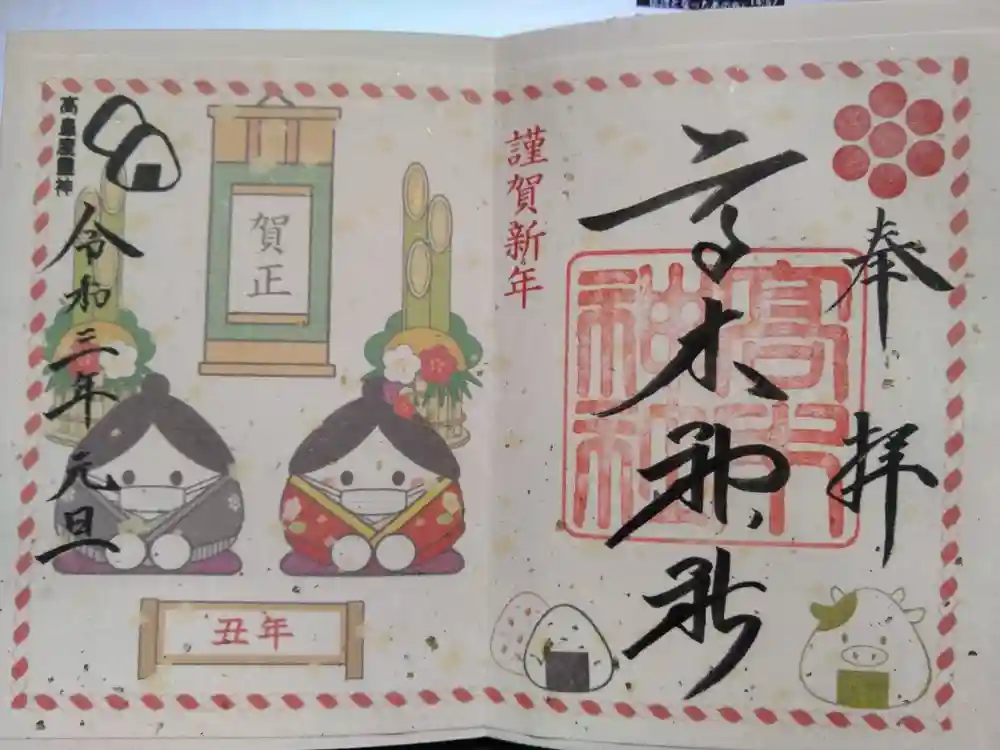 奉拝
高木神社
高木
神社
謹賀新年
賀正
高皇産霊神
令和三年 元旦
丑年